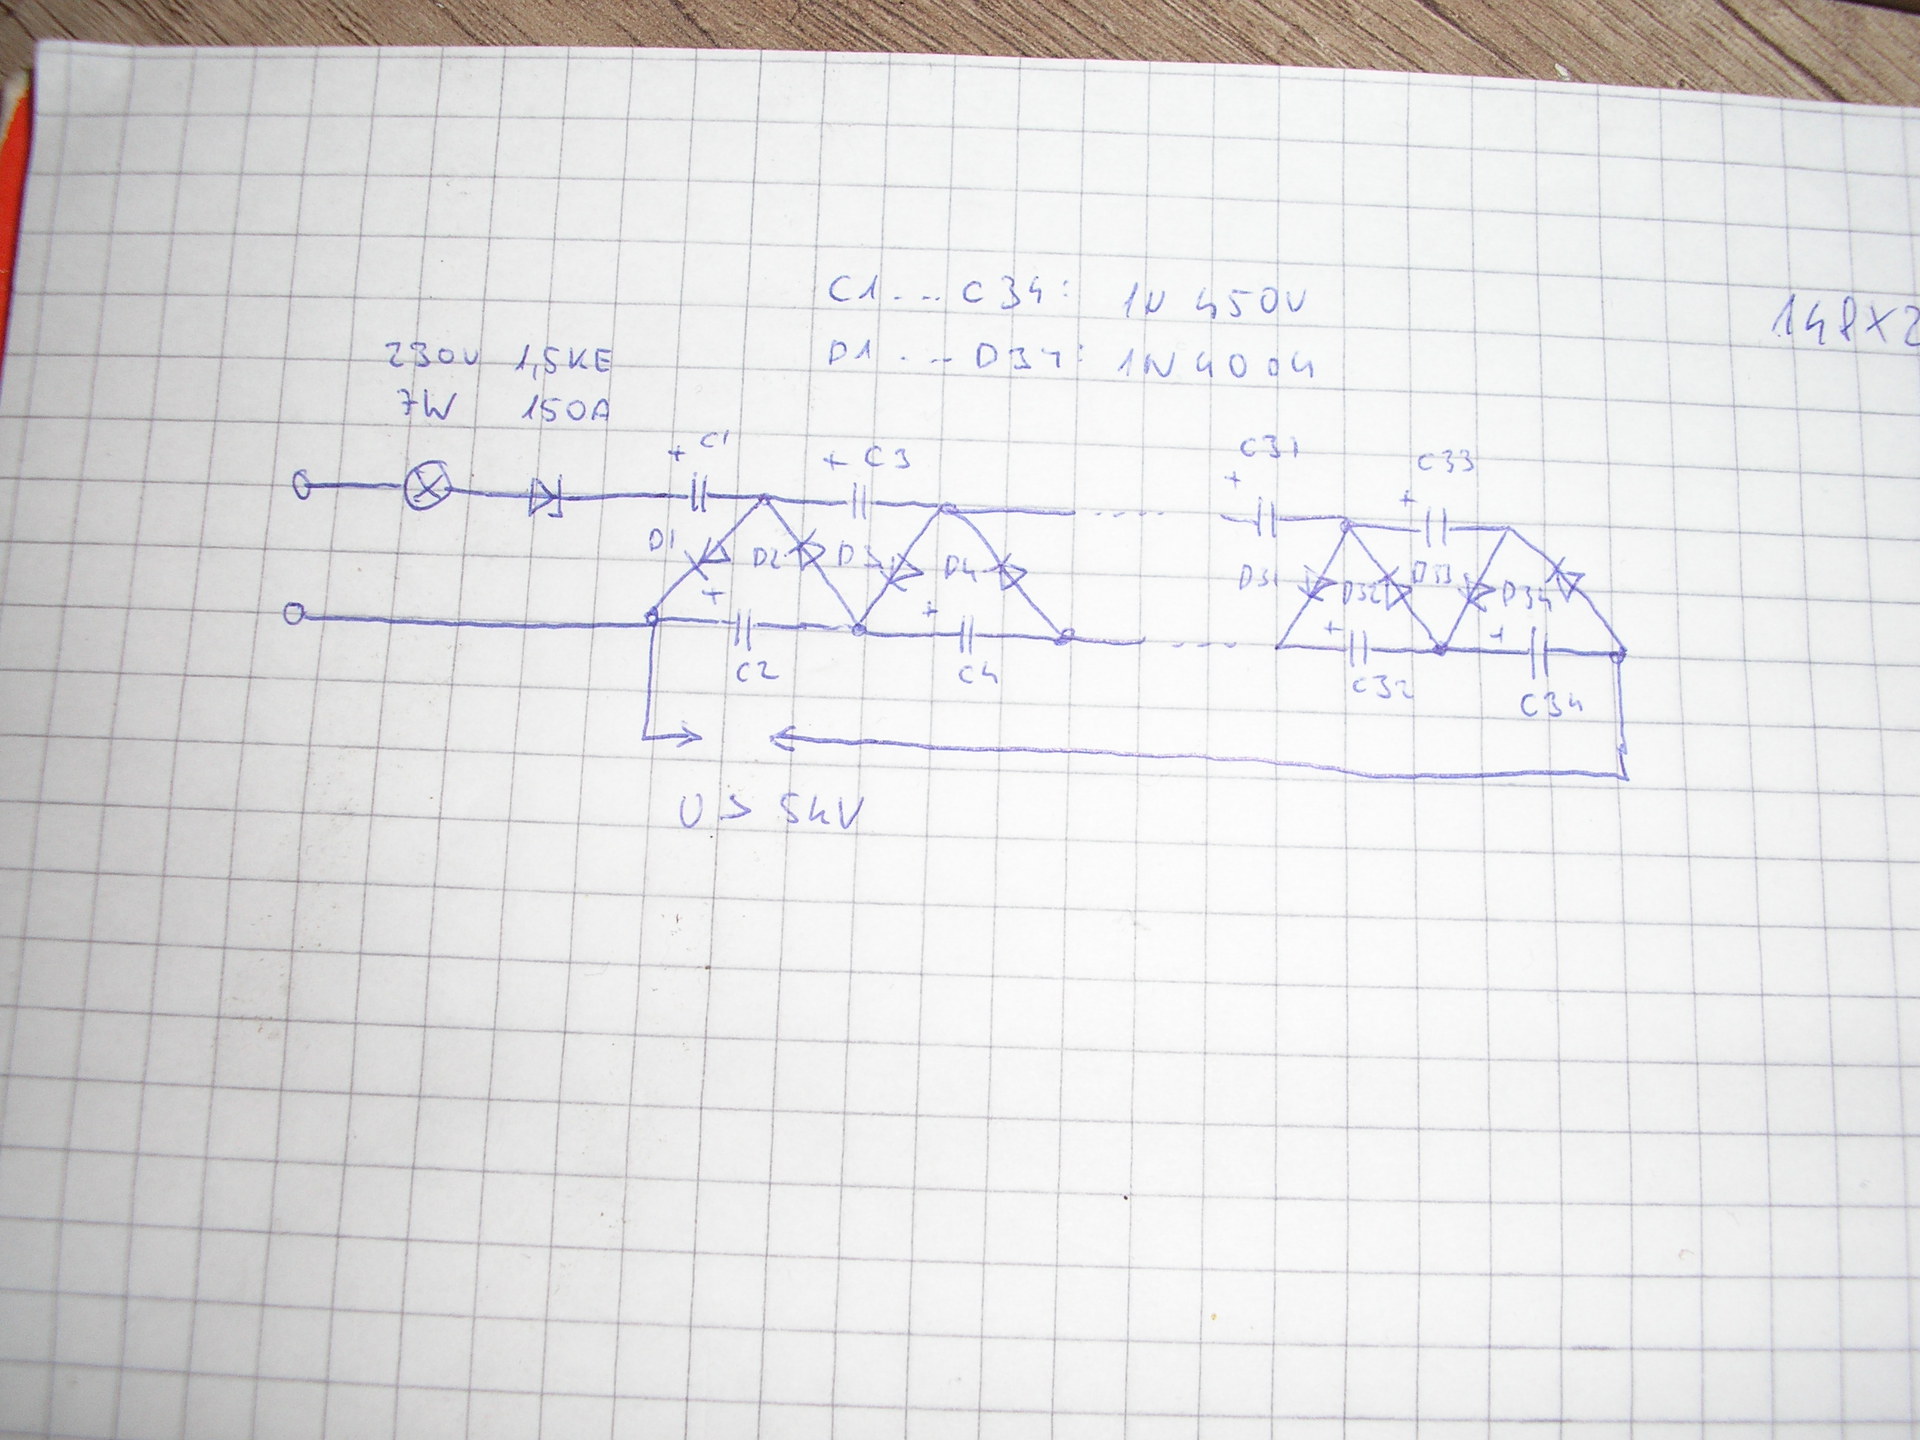 C1...C34: 1N 450V
148X2
230V 1,5KE
D1...D34: 1N4004
7W 150A
+ C1
+ C3
C31
+
C33
+
D1
D2
D3
D4
D31
D32
D33
D34
+
+
+
+
C2
C4
C32
C34
U > 5kV